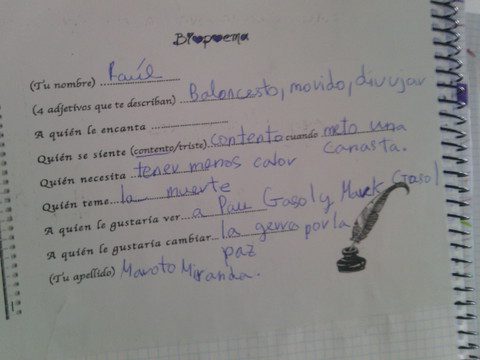 Biopoema
(Tu nombre) Raúl
(4 adjetivos que te describan) Baloncesto, movido, divujar
A quién le encanta
Quién se siente (contento/triste) contento cuando meto una canasta.
Quién necesita tener menos calor
Quién teme la muerte
A quien le gustaría ver a Pau Gasol y Marck Gasol
A quién le gustaría cambiar la gerra por la paz
(Tu apellido) Maroto Miranda.